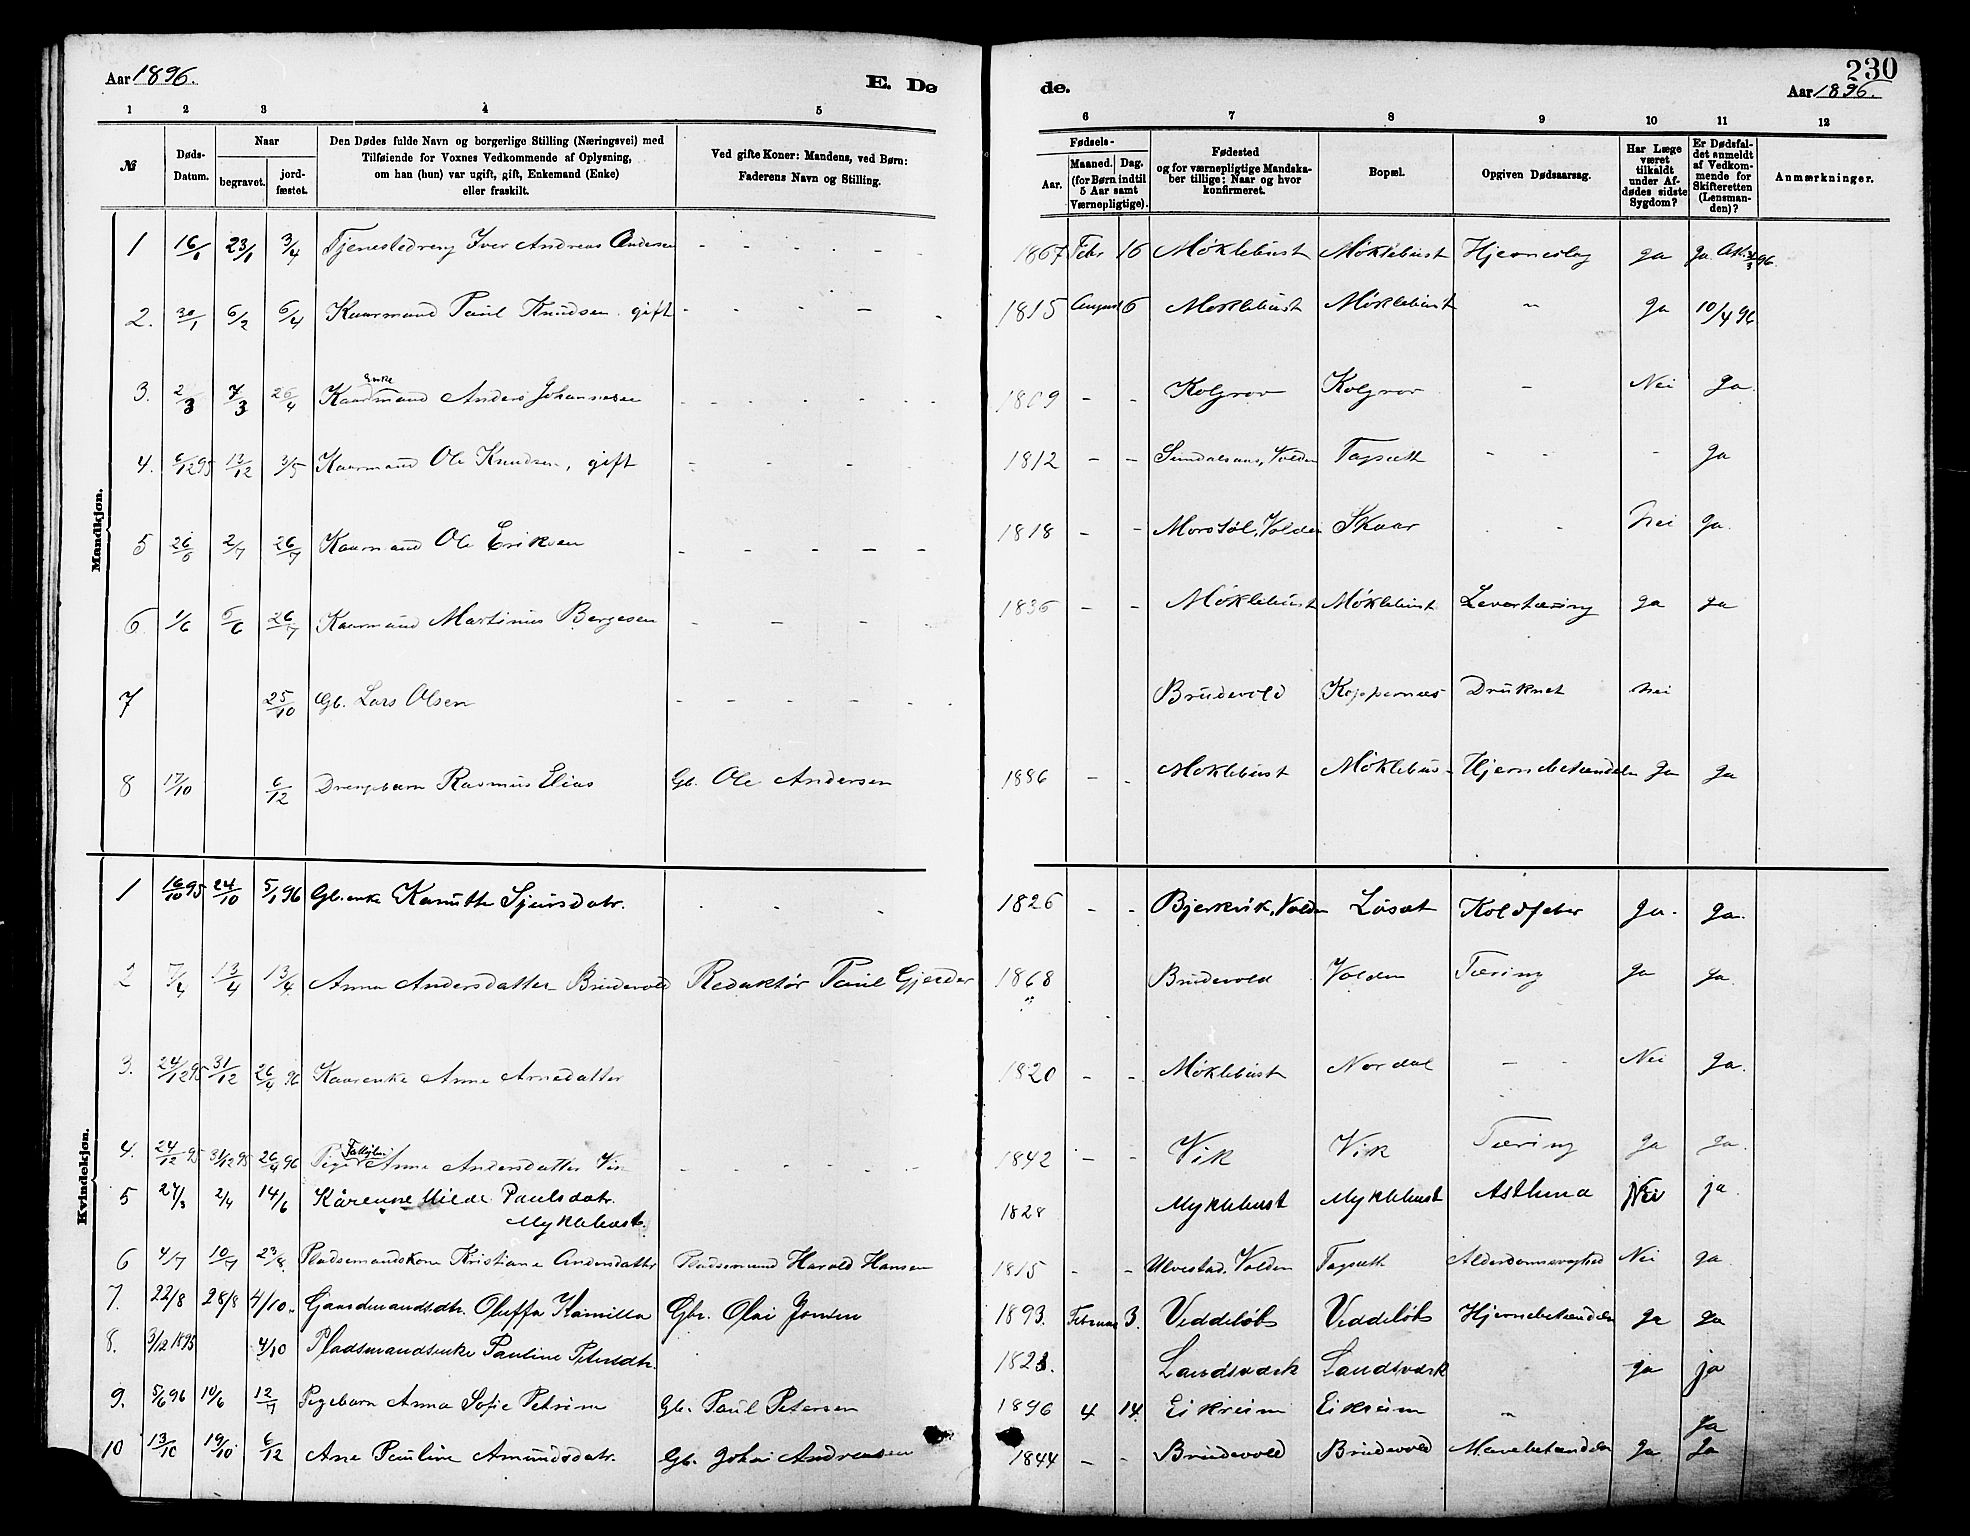 Aar 1896.
E. De
de.
230
Aar 1896.
1 2 3 4 5
6 7 8 9 10 11 12
№
Døds-
Datum.
Naar
begravet.
jord-
fæstet.
Den Dødes fulde Navn og borgerlige Stilling (Næringsvei) med
Tilføiende for Voxnes Vedkommende af Oplysning,
om han (hun) var ugift, gift, Enkemand (Enke)
eller fraskilt.
Ved gifte Koner: Mandens, ved Børn:
Faderens Navn og Stilling.
Fødsels-
Aar.
Maaned. Dag.
(for Børn indtil
5 Aar samt
Værnepligtige).
Fødested
og for værnepligtige Mandska-
ber tillige: Naar og hvor
konfirmeret.
Bopæl.
Opgiven Dødsaarsag.
Har Læge
været
tilkaldt
under Af-
dødes sidste
Sygdom?
Er Dødsfal-
det anmeldt
af Vedkom-
mende for
Skifteretten
(Lensman-
den)?
Anmærkninger.
Mandkjøn.
1 16/1 23/1 3/4 Tjenestedreng Iver Andreas Andersen - - - - - 1867 Febr 16 Møklebust Møklebust Hjerneslag ja ja
2. 30/1 6/2 6/4 Kaarmand Paul Knudsen. gift - - - - - 1815 August 6 Møklebust Møklebust " ja 10/4 96
Enke
3. 2/3 7/3 26/4 Kaarmand Anders Johannesen - - - - - 1809 - - Kolgrov Kolgrov - Nei ja.
4. 6/12 95 13/12 3/5 Kaarmand Ole Knudsen, gift - - - - 1812 - - Volden Tagseth - - - ja
5 26/6 2/7 26/7 Kaarmand Ole Eriksen - - - - - 1818 - - Morstøl, Volden Skaar - - Nei ja.
6 1/6 6/6 26/7 Kaarmand Martinus Børgesen - - - - 1836 - - Møklebust Møklebust Levertæring ja ja
7 25/10 Gb. Lars Olsen - - - - - - Brudevold Koppernæs Druknet Nei
8 17/10 6/12 Drengebarn Rasmus Elias Gb. Ole Andersen 1886 - - Møklebust Møklebus- Hjernebetændelse ja ja
Kvindekjøn.
1 16/10 95 24/10 5/1 96 Gb.enke Knutte Sjursdatr. - - - 1826 - - Bjerkvik, Volden Løset Koldfeber ja. ja.
2 7/4 13/4 13/4 Anna Andersdatter Brudevold Redaktør Paul Gjerder 1868 Brudevold Volden Tæring ja ja.
3. 24/12 95 31/12 26/4 96 Kaarenke Anne Arnedatter 1820 - - Møklebust Nordal - - Nei ja.
4. 24/12 95 31/12 95 26/4 96 Pige Anne Andersdatter Vik - - - - - 1842 - - Vik Vik Tæring ja ja.
5 27/3 2/4 14/6 Kårenne Milde Paulsdatr. 1828 Myklebust Myklebust Asthma Nei ja.
Myklebust.
6 4/7 10/7 23/8. Pladsemandskone Kristiane Andersdatter Pladsemand Harald Hansen 1815 - - Ulvestad, Volden Tagseth Alderdomssvaghed Nei ja.
7. 22/8 28/8 4/10 Gaardmandsdtr. Oluffa Kamilla Gbr. Olai Jonsen 1893. Februar 3. Veddeløb Veddeløb Hjernebetændelse ja ja
8. 3/12 1895 4/10 Pladsmandsenke Pauline Petersdtr. 1823. Landsværk Landsværk ja ja
9. 5/6 96 10/6 12/7 Pigebarn Anna Sofie Petrine Gbr. Paul Petersen 1896 4 14. Eikreim Eikreim " ja
10 13/10 19/10 6/12 Ane Pauline Amundsdatr. Gb. Johan Andreassen 1844 - - Brudevold Brudevold Mavebetændelse ja ja